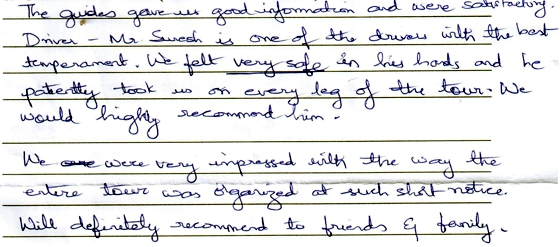 The guides gave us good information and were satisfactory.
Driver - Mr Suresh is one of the drivers with the best
temperament. We felt very safe in his hands and he
patiently took us on every leg of the tour. We
would highly recommend him.
We were very impressed with the way the
entire tour was organized at such short notice.
Will definitely recommend to friends & family.